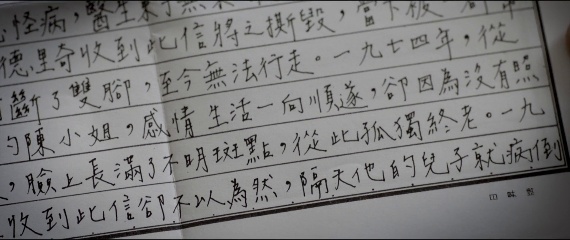 怪病,醫生束手無策
德里奇收到此信將之撕毀,當下被
斷了雙腳,至今無法行走。一九七四年,從
的陳小姐,感情生活一向順遂,卻因為沒有照
,臉上長滿了不明斑點,從此孤獨終老。一九
收到此信卻不以為然,隔天他的兒子就病倒